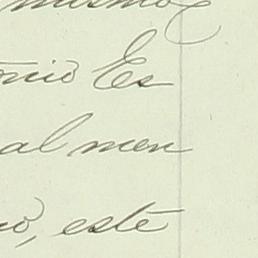 mismo
onio Es
al men
o, este